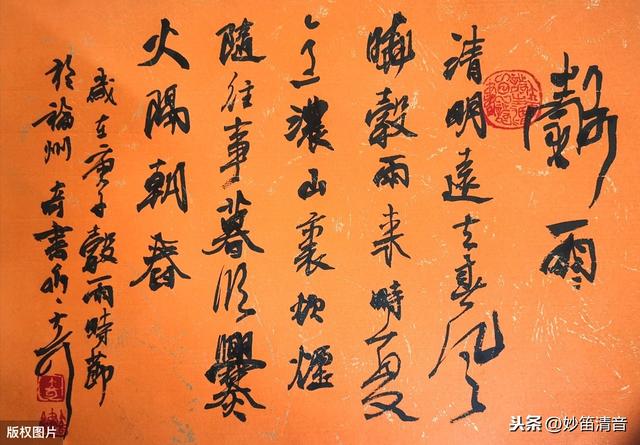 穀雨
清明遠去春風
穀雨来時夏又
濃山裏炊煙
隨往事暮爨
火隔朝舂
歲在庚子穀雨時節
於福州奇書
版权图片
头条 @妙笛清音